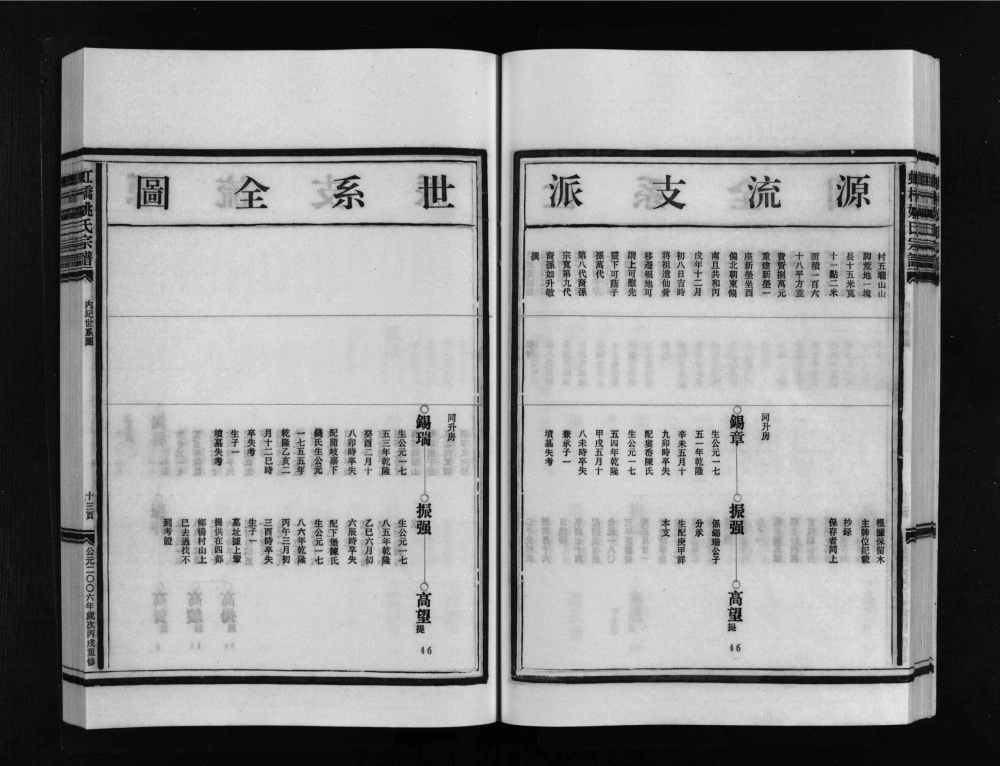 源流支派
村五壠山山
脚荒地一塊
長十五米寬
十一點二米
面積一百六
十八平方並
費資捌萬元
重建新塋一
座新塋坐酉
偏北朝東偏
南且共和丙
戌年十二月
初八日吉時
將祖遺仙骨
移遷福地可
謂上可慰先
靈下可蔭子
孫萬代
第八代裔孫
宗寬第九代
裔孫如升敬
撰
根據保留木
主牌位記載
抄錄
保存者同上
同升房
錫章
生公元一七
五一年乾隆
辛未五月十
九卯時卒失
配鑒岙陳氏
生公元一七
五四年乾隆
甲戌五月十
八未時卒失
兼承子一
墳墓失考
振强
係錫瑞公子
分承
生配庚甲詳
本支
高望
提
46
世系全圖
同升房
錫瑞
生公元一七
五三年乾隆
癸酉二月十
八卯時卒失
配蘭岐嘉下
錢氏生公元
一七五五年
乾隆乙亥二
月十二巳時
卒失考
生子一
墳墓失考
振强
生公元一七
八五年乾隆
乙巳六月初
六辰時卒失
配下塘陳氏
生公元一七
八六年乾隆
丙午三月初
三酉時卒失
生子一
墓址據上輩
提供在四都
鄉楊村山上
已去過找不
到考證
高望
提
46
虹橋姚氏宗譜
內紀世系圖
十三頁
公元二〇〇六年歲次丙戌重修